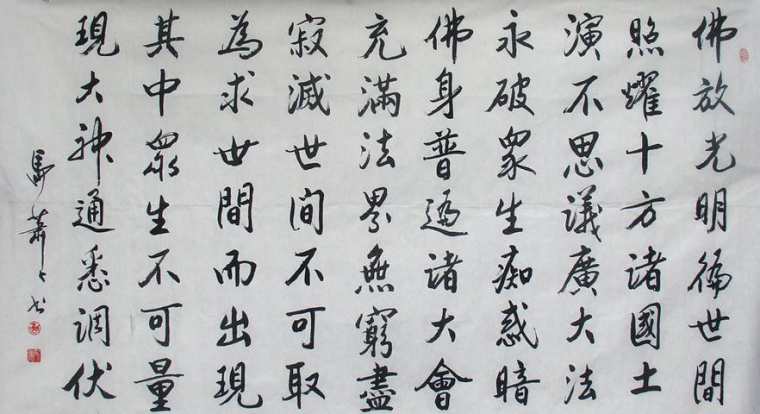 佛放光明徧世間
照耀十方諸國土
演不思議廣大法
永破衆生痴惑暗
佛身普遍諸大會
充滿法界無窮盡
寂滅世间不可取
為求世間而出現
其中眾生不可量
現大神通悉调伏
馬蕭〻书